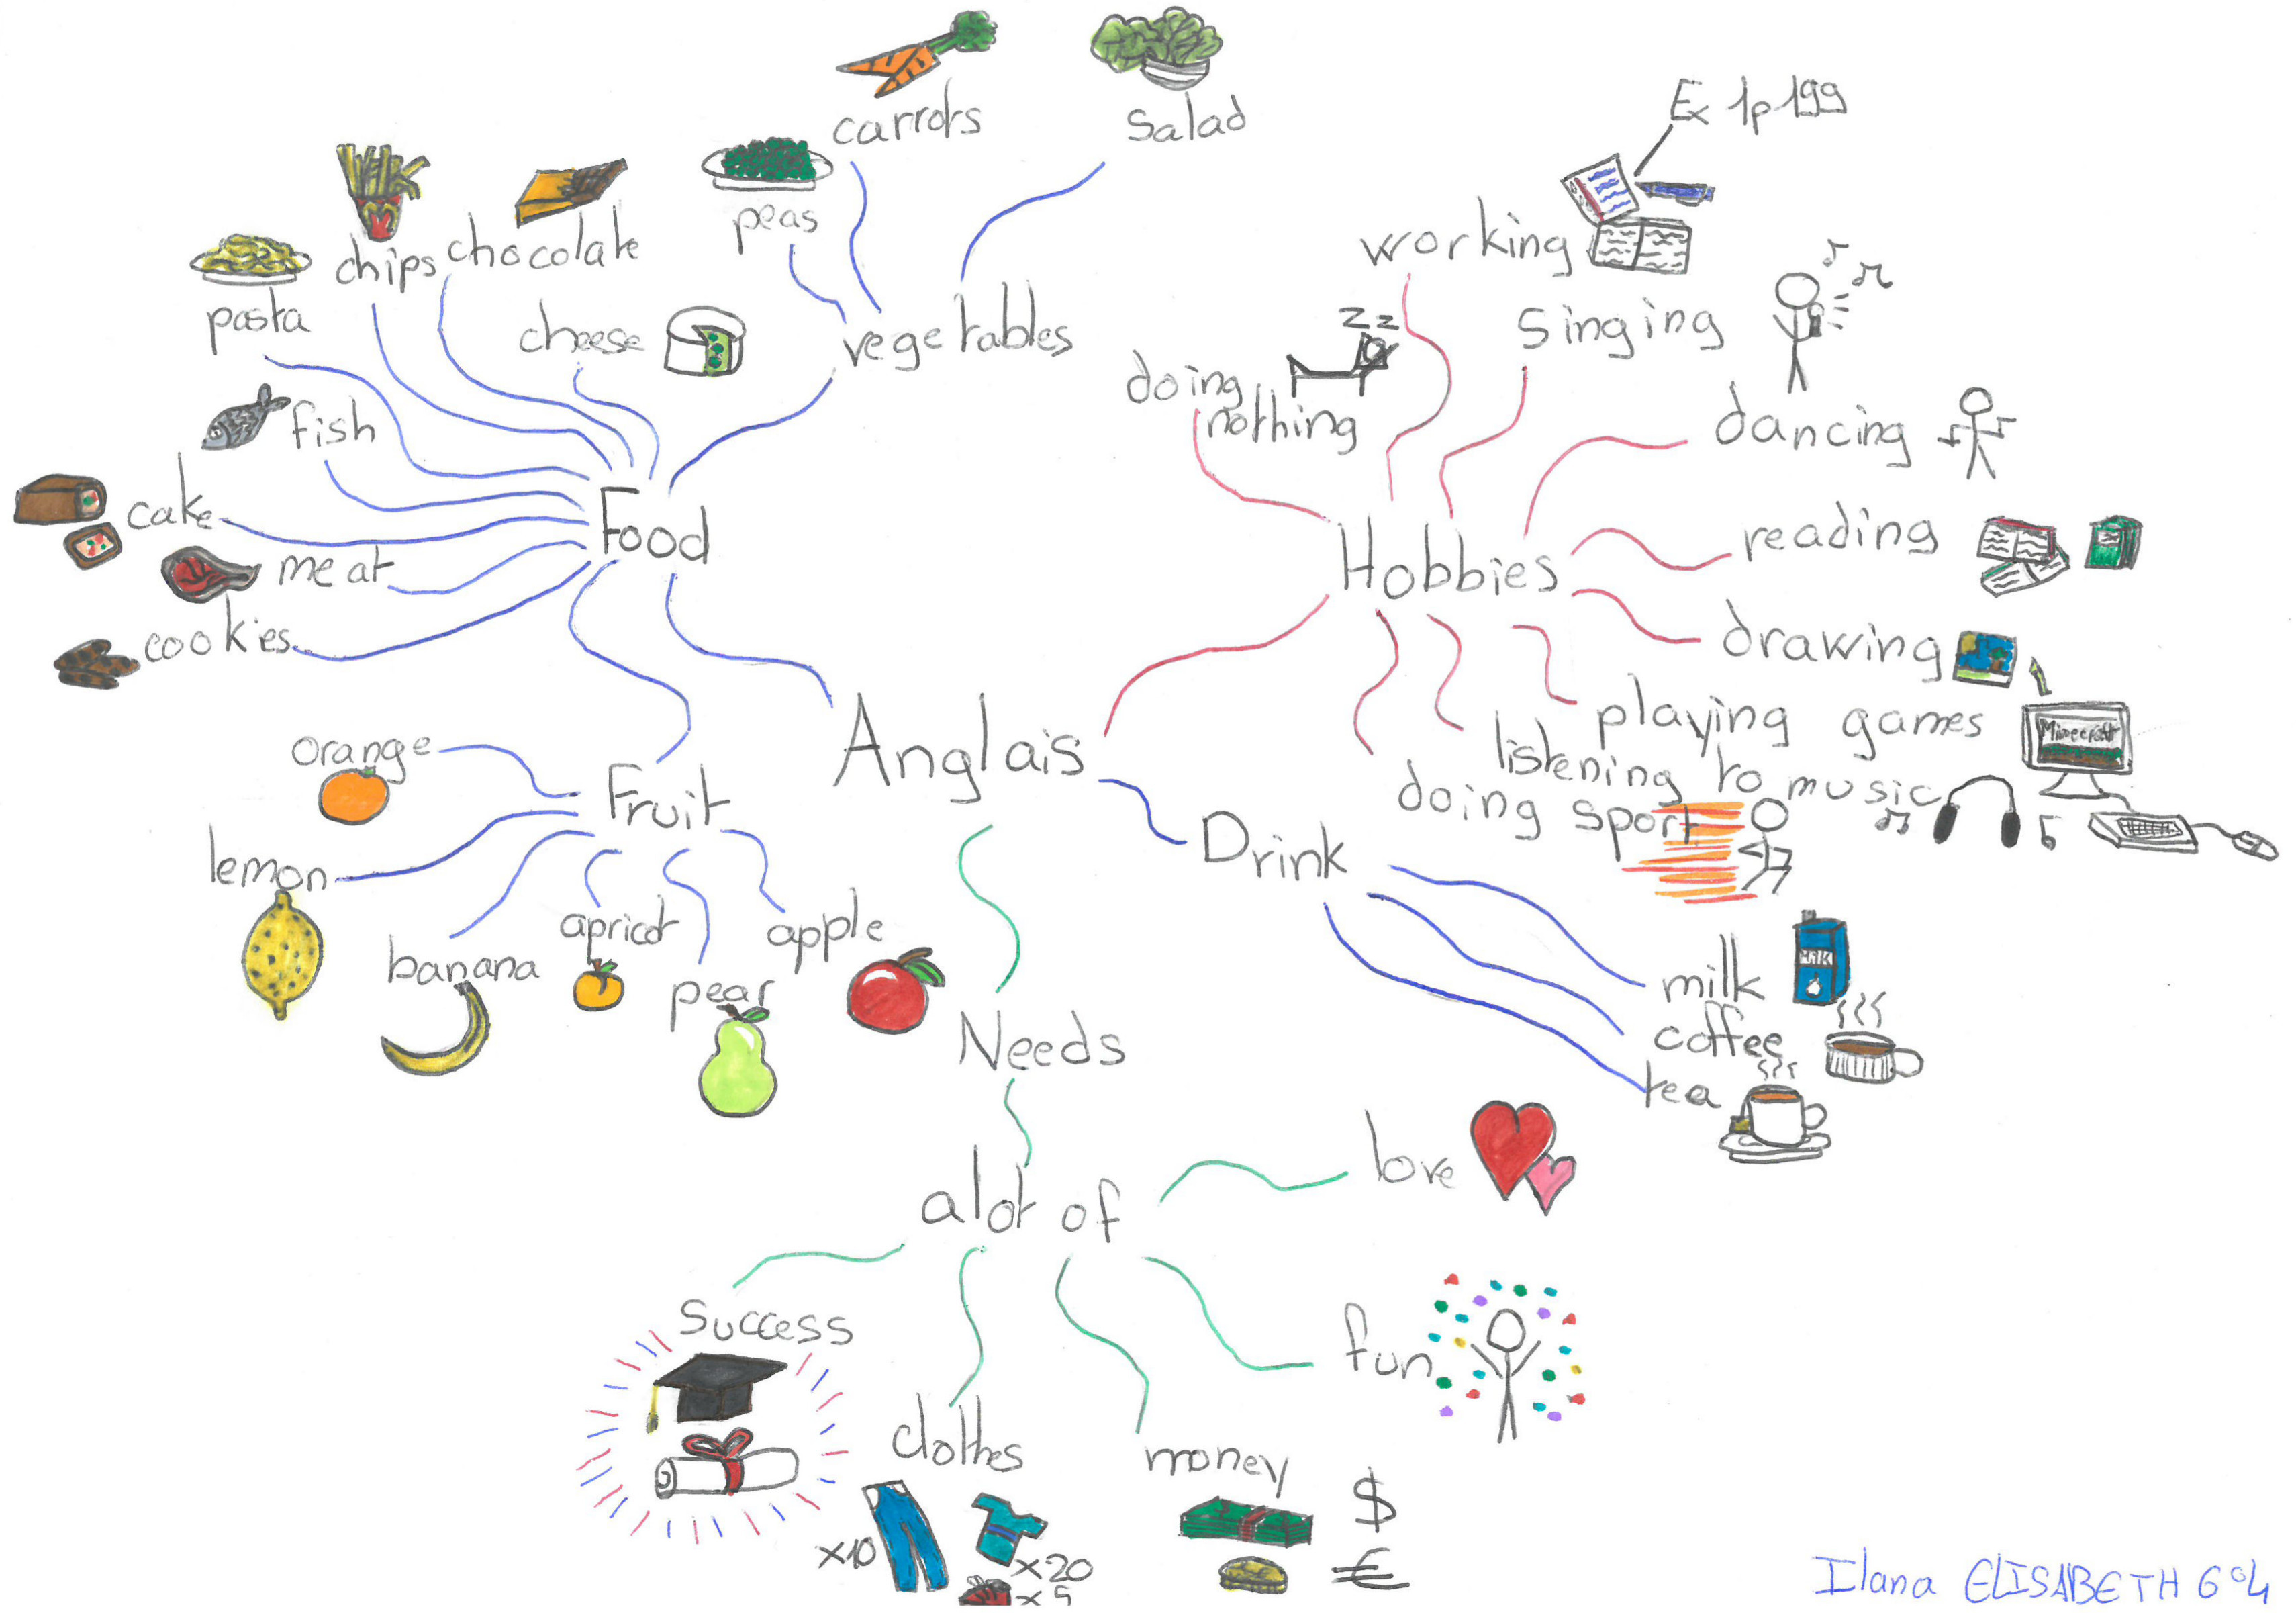 carrots
Salad
Ex 1p199
peas
chips
chocolate
working
pasta
cheese
vegetables
zz
Singing
doing
nothing
dancing
fish
cake
Food
reading
meat
Hobbies
cookies
drawing
playing games
Minecraft
listening to music
doing sport
orange
Anglais
Fruit
Drink
lemon
apricot
apple
banana
pear
milk
MILK
coffee
tea
Needs
love
alot of
Success
fun
clothes
money
$
x10
x20
x5
€
Ilana ELISABETH 6°4